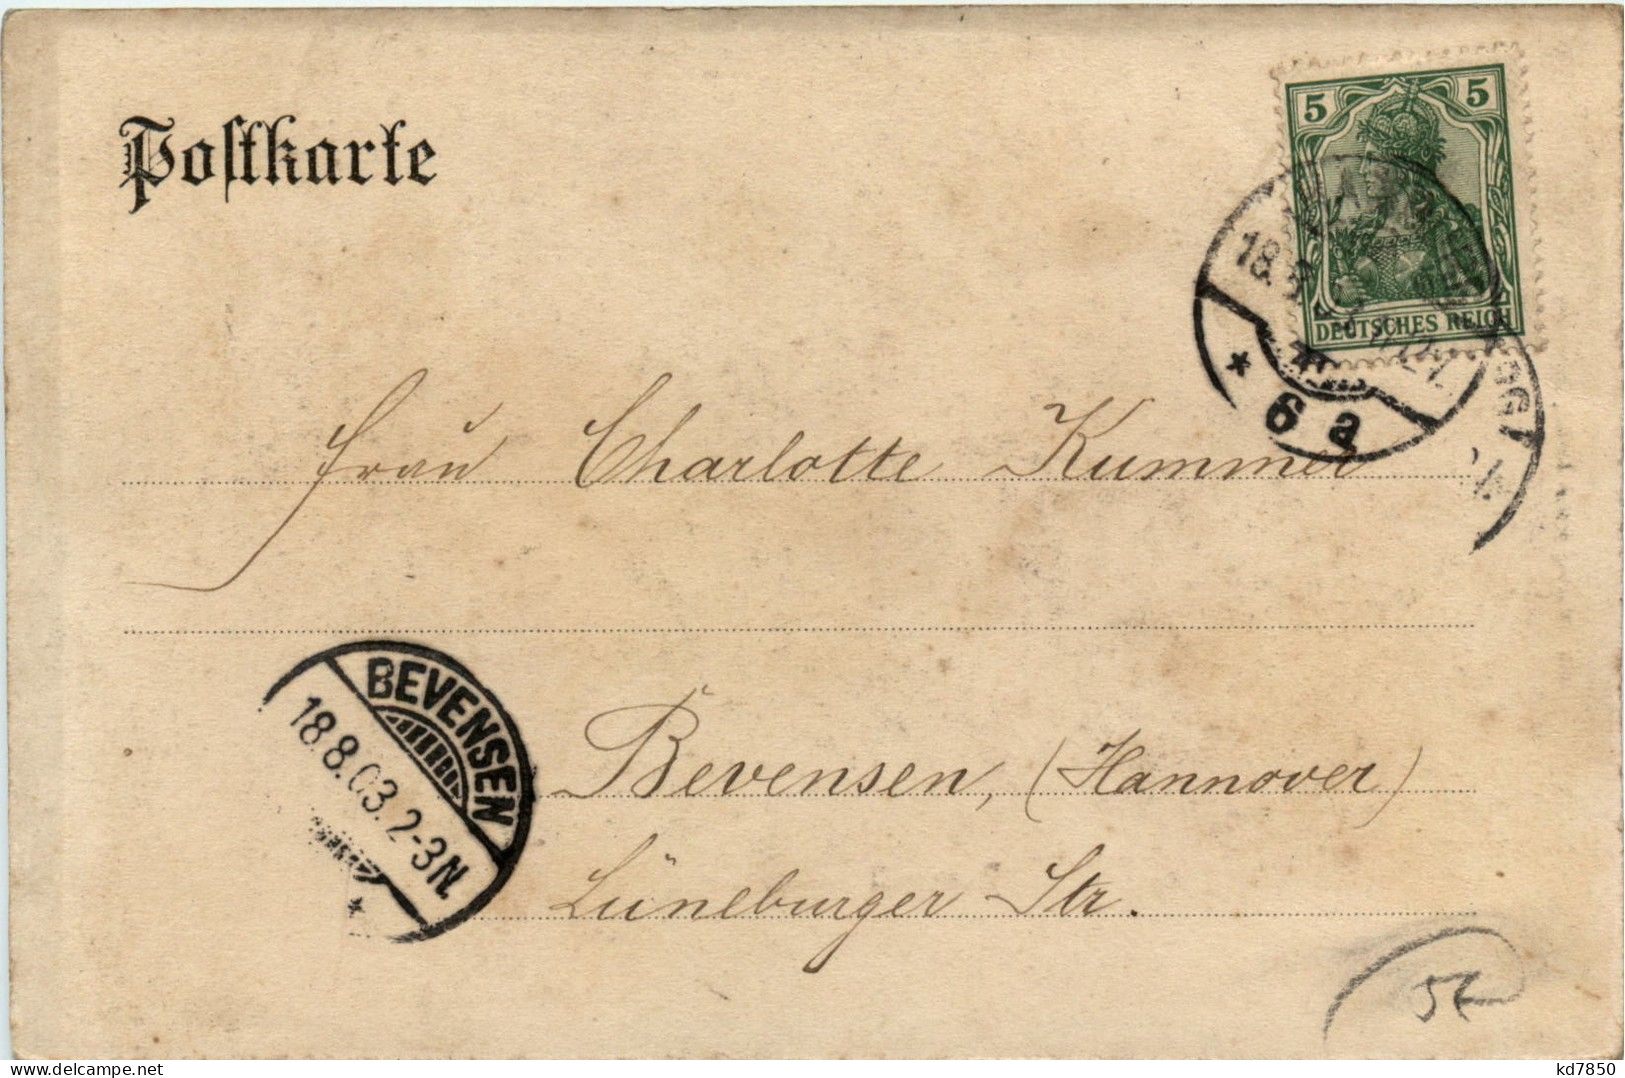 5 5
DEUTSCHES REICH
Postkarte
18.8.
* 6 a
Frau Charlotte Kummer
BEVENSEN
18.8.03.2-3N.
*
Bevensen, (Hannover)
Lüneburger Str.
kd7850